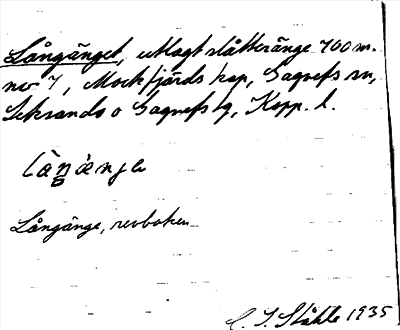 Långänget, utlagt slåtteränge 700 m.
nv 7, Mockfjärds kap, Gagnefs sn,
Leksands o Gagnefs tg, Kopp. l.
Långänge, revboken
C. I. Ståhle 1935